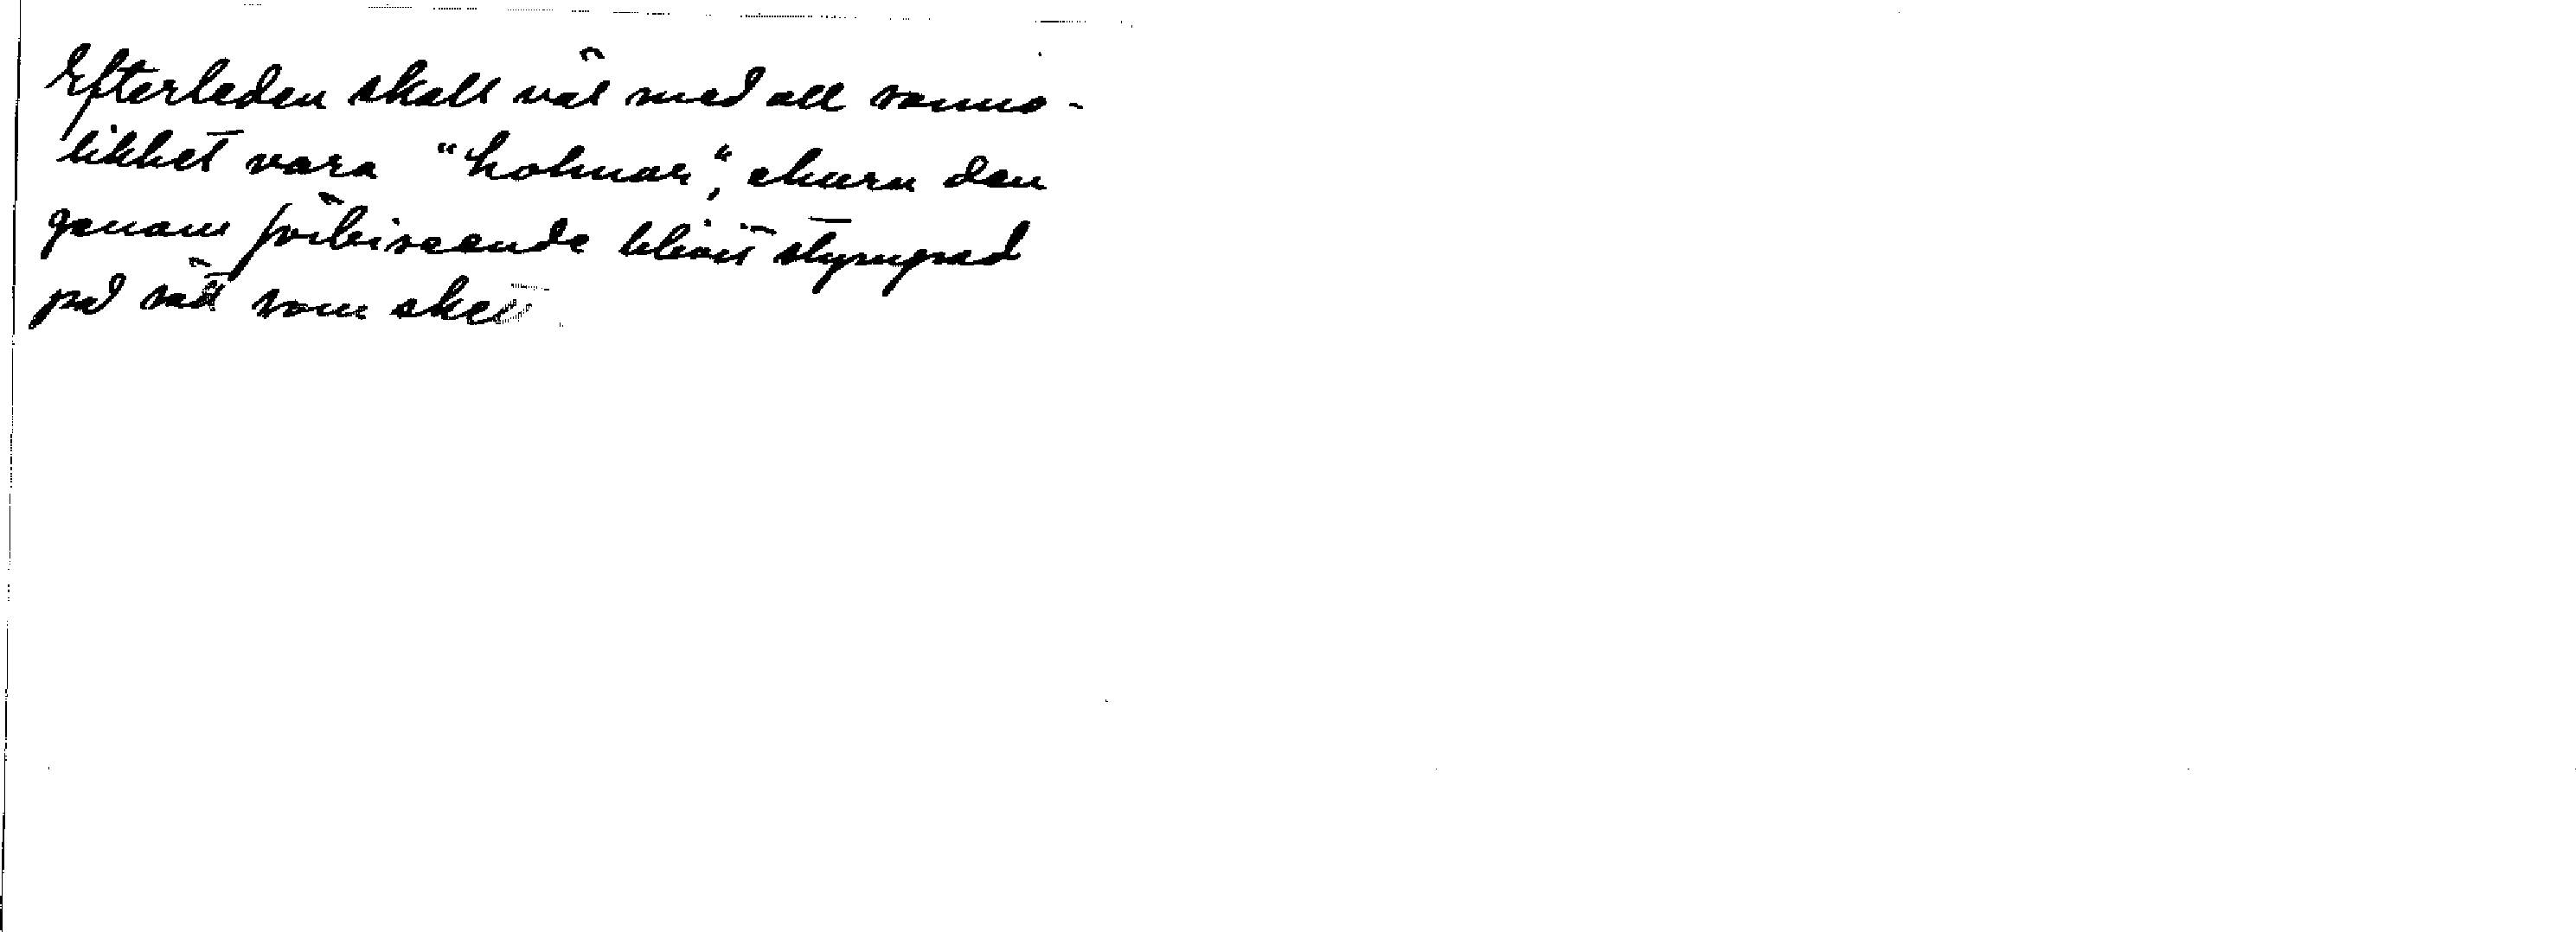 Efterleden skall väl med all sanno-
likhet vara "holmar", ehuru den
genom förbiseende blivit stympad
på sätt som sket.